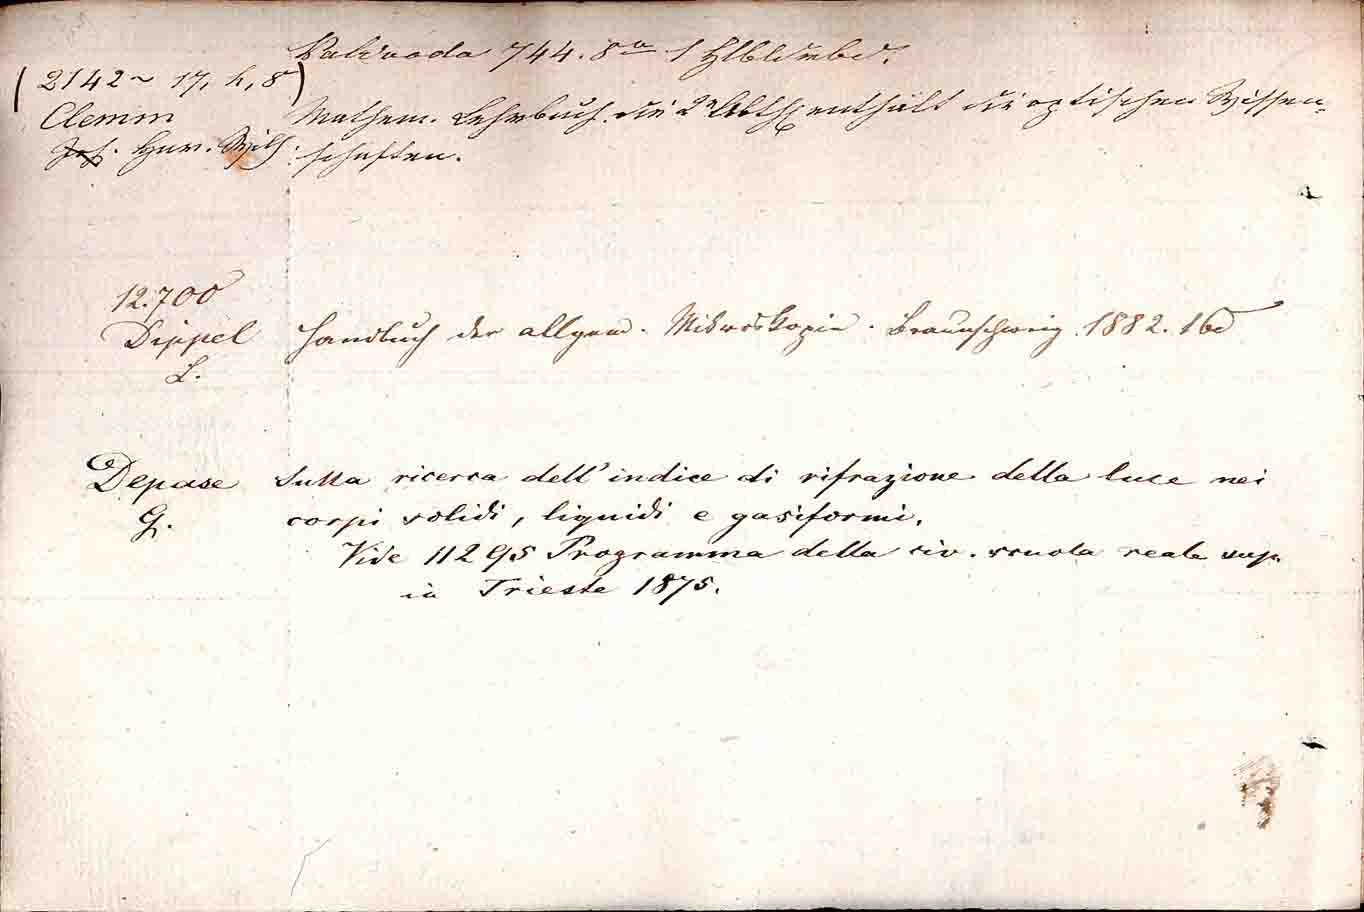 744. 8°
(2142~ 17, h, 8)
Clemm Mathem. Lehrbuch. die 2te Abth enthält die optischen Wissen-
Hnr. Wilh. schaften.
12.700
Dippel Handbuch der allgem. Mikroskopie. Braunschweig 1882. 1 Bd
L.
Depase Sulla ricerca dell'indice di rifrazione della luce nei
G. corpi solidi, liquidi e gasiformi.
Vide 11295 Programma della civ. scuola reale sup.
in Trieste 1875.